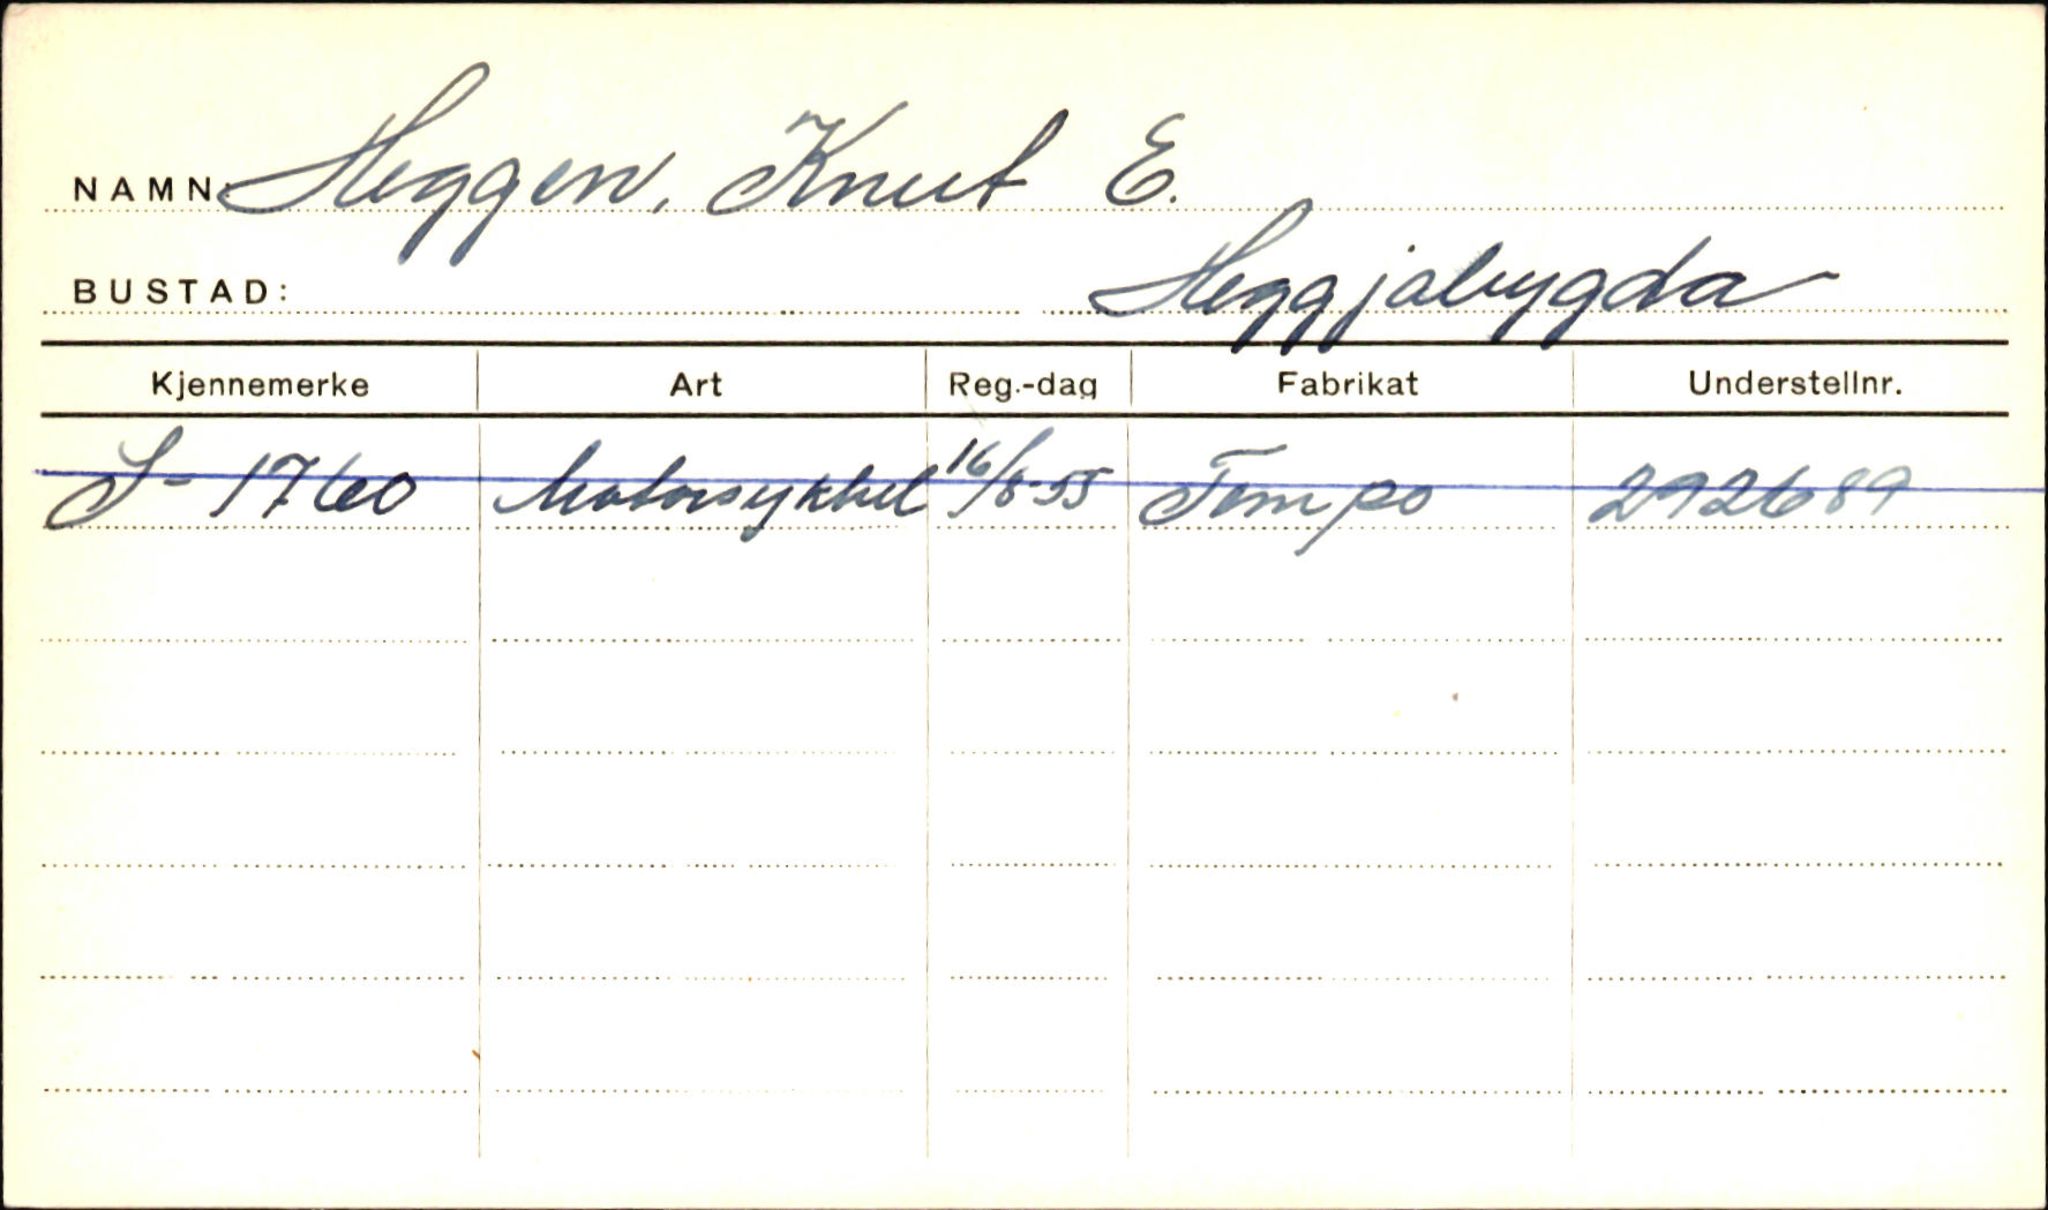 NAMN: Heggen, Knut E.
BUSTAD: Heggjabygda
Kjennemerke Art Reg.-dag Fabrikat Understellnr.
S-1760 Motorsykkel 16/8-55 Tempo 292689